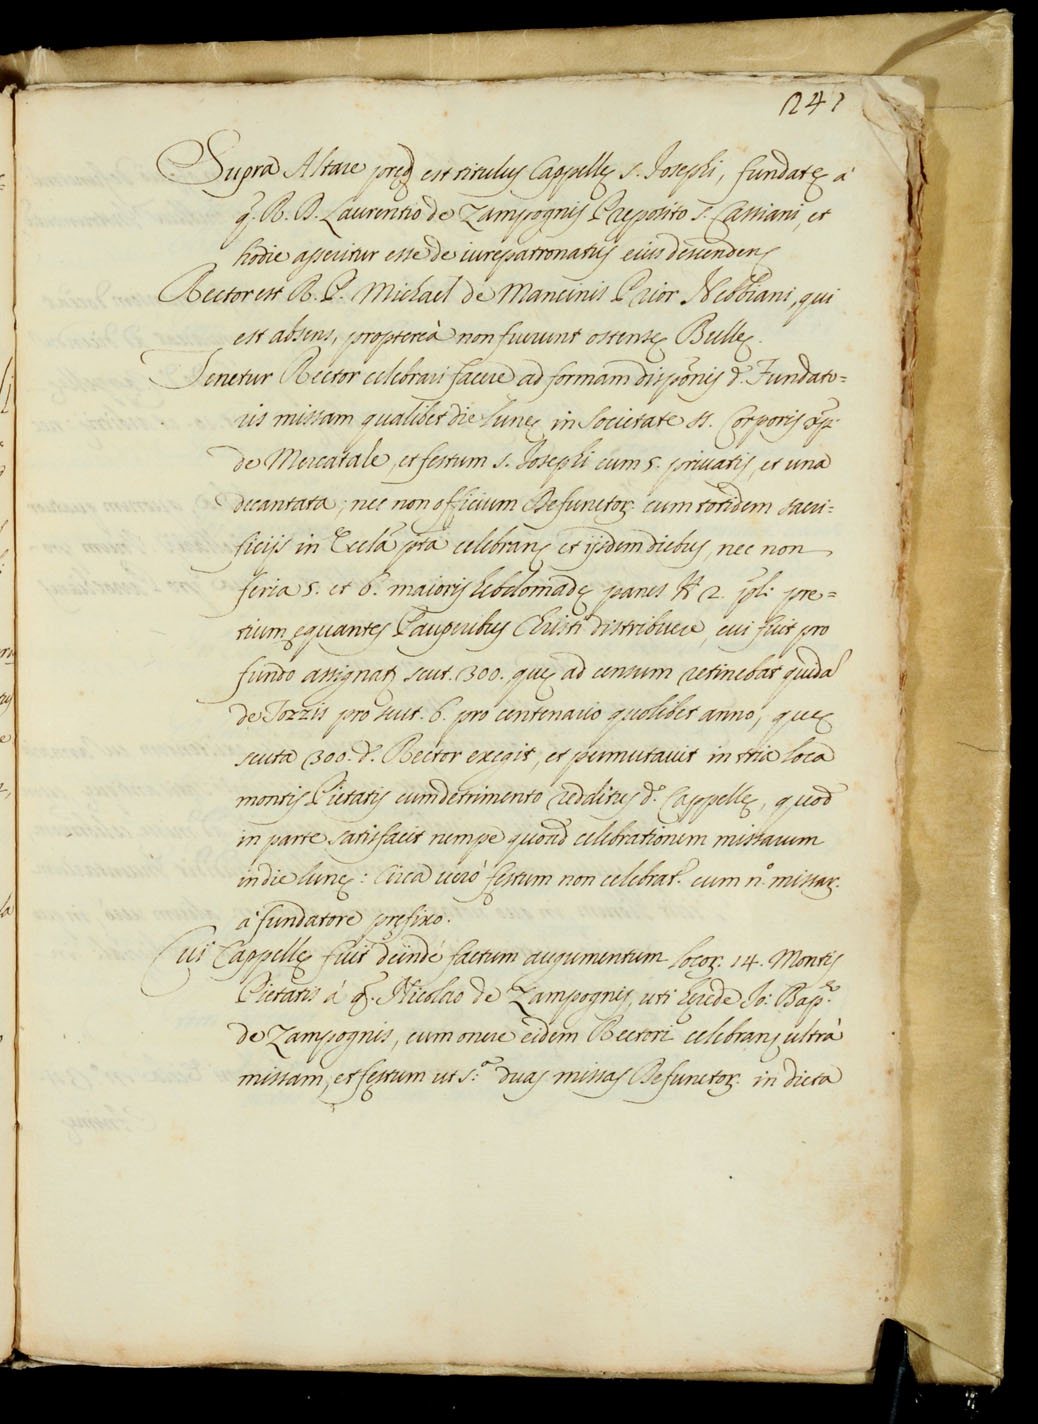 241
Supra Altare pręd. est titulus Cappellę S. Josephi, fundatę à
q. R. D. Laurentio de Zampognis Pręposito S. Cassiani, et
hodie asseritur esse de iurepatronatus eius descendenᵗ
Rector est R. P. Michael de Mancinis Prior Nebbiani, qui
est absens, proptereà non fuerunt ostensę Bullę.
Tenetur Rector celebrari facere ad formam dispõnis d. Fundato=
ris missam qualibet die lunę in Societate SS. Corporis Xp̃i
de Mercatale, et festum S. Josephi cum 5. privatis, et una
decantata; nec non officium Defunctor. cum totidem sacri=
ficijs in Eccla pta celebranᵗ et ijsdem diebus, nec non
feria 5. et 6. maioris hebdomadę panes 2. pre=
tium ęquantes Pauperibus Christi distribuere, cui fuit pro
fundo assignat. scut. 300. quę ad censum retinebat quidã
de Tozzis pro scut. 6. pro centenario quolibet anno, quę
scuta 300. d. Rector exegit, et permutavit in tria loca
montis Pietatis cum detrimento redditus d. Cappellę, quod
in parte satisfacit nempe quoad celebrationem missarum
in die lunę: Circa verò festum non celebrat. cum n.º missar.
à fundatore prefixo.
Cui Cappellę fuit deindè factum augumentum locor. 14. Montis
Pietatis à q. Nicolao de Zampognis, uti herede Jo: Bap.
de Zampognis, cum onere eidem Rectori celebranᵗ ultrà
missam, et festum ut s.ª duas missas Defunctor. in dicta